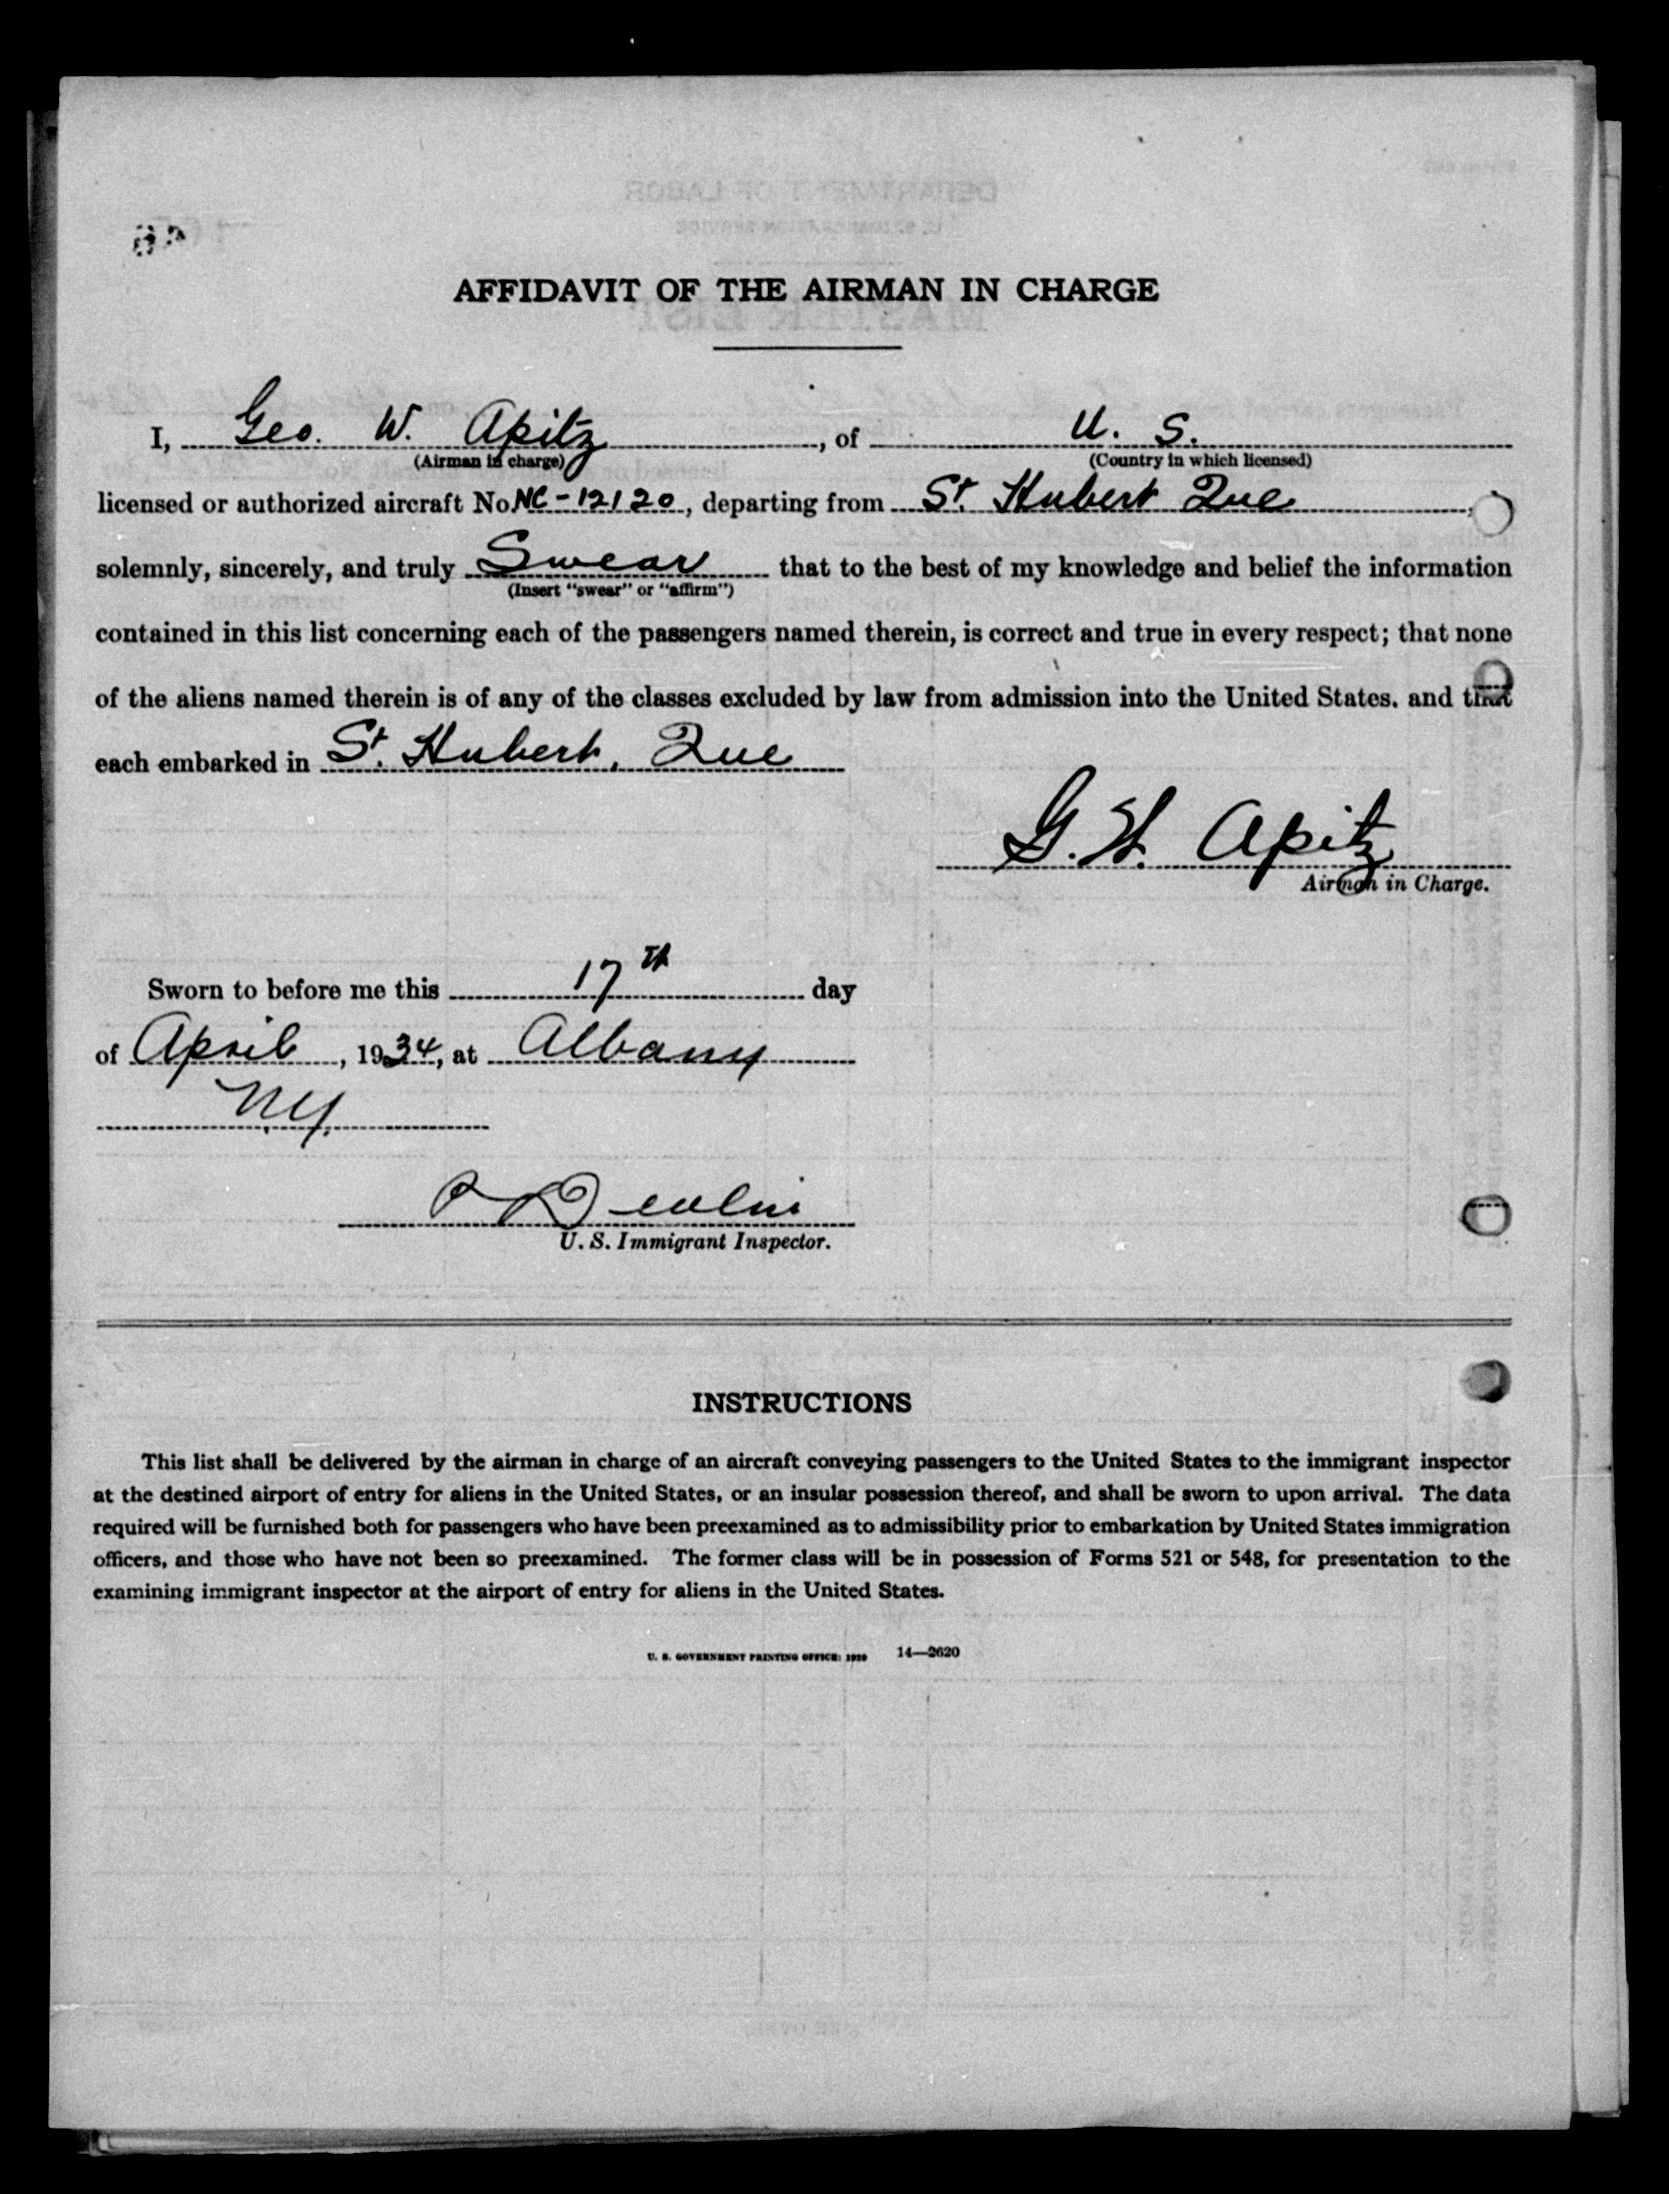 AFFIDAVIT OF THE AIRMAN IN CHARGE
I, Geo. W. Apitz, of U. S.
(Airman in charge) (Country in which licensed)
licensed or authorized aircraft No. NC-12120, departing from St. Hubert Que,
solemnly, sincerely, and truly Swear that to the best of my knowledge and belief the information
(Insert "swear" or "affirm")
contained in this list concerning each of the passengers named therein, is correct and true in every respect; that none
of the aliens named therein is of any of the classes excluded by law from admission into the United States, and that
each embarked in St. Hubert, Que
G. W. Apitz
Airman in Charge.
Sworn to before me this 17th day
of April, 1934, at Albany
N.Y.
Devlin
U. S. Immigrant Inspector.
INSTRUCTIONS
This list shall be delivered by the airman in charge of an aircraft conveying passengers to the United States to the immigrant inspector
at the destined airport of entry for aliens in the United States, or an insular possession thereof, and shall be sworn to upon arrival. The data
required will be furnished both for passengers who have been preexamined as to admissibility prior to embarkation by United States immigration
officers, and those who have not been so preexamined. The former class will be in possession of Forms 521 or 548, for presentation to the
examining immigrant inspector at the airport of entry for aliens in the United States.
U. S. GOVERNMENT PRINTING OFFICE: 1929 14—2620